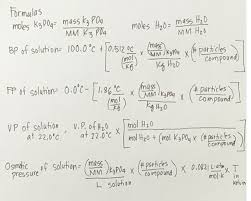 Formulas
moles K3PO4 = mass K3PO4 / MM K3PO4 moles H2O = mass H2O / MM H2O
BP of solution = 100.0°C + [0.512 °C / (mol/kg) × (mass/MM) K3PO4 / kg H2O × (# particles / compound)]
FP of solution = 0.0°C - [1.86 °C / (mol/kg) × (mass/MM) K3PO4 / kg H2O × (# particles / compound)]
VP of solution at 22.0°C = V.P. of H2O at 22.0°C × [mol H2O / mol H2O + (mol K3PO4 × (# particles / compound))]
Osmotic pressure of solution = (mass/MM) K3PO4 × (# particles / compound) / L solution × 0.0821 L atm / mol·K × T in kelvin